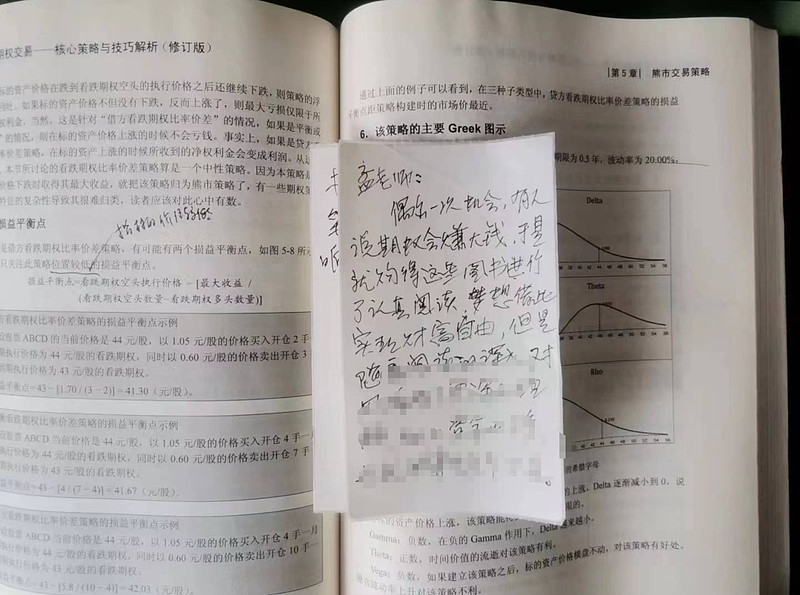 期权交易——核心策略与技巧解析（修订版）
标的资产价格在跌到看跌期权空头的执行价格之后还继续下跌，则策略的浮
如果标的资产价格不但没有下跌，反而上涨了，则最大亏损仅限于所
权利金。当然，这是针对“借方看跌期权比率价差”的情况，如果是平衡或
”的情况，则在标的资产价格上涨的时候不会亏钱。事实上，如果是贷方
率价差策略，在标的资产上涨的时候所收到的净权利金会变成利润。从这
，本节所讨论的看跌期权比率价差策略算是一个中性策略。因为本策略是
价格下跌时取得其最大收益，就把该策略归为熊市策略了，有一些期权策
特征的复杂性导致其很难归类，读者应该对此心中有数。
损益平衡点
是借方看跌期权比率价差，有可能有两个损益平衡点，如图 5-8 所
只关注此策略位置较低的损益平衡点。
损益平衡点=看跌期权空头执行价格－[最大收益 /
（看跌期权空头数量－看跌期权多头数量）]
方看跌期权比率价差策略的损益平衡点示例
股票 ABCD 的当前价格是 44 元/股，以 1.05 元/股的价格买入开仓 2 手
执行价格为 44 元/股的看跌期权，同时以 0.60 元/股的价格卖出开仓 3
期执行价格为 43 元/股的看跌期权。
益平衡点＝43－[1.70 / (3－2)]＝41.30（元/股）。
衡看跌期权比率价差策略的损益平衡点示例
股票 ABCD 当前价格是 44 元/股，以 1.05 元/股的价格买入开仓 4 手一
执行价格为 44 元/股的看跌期权，同时以 0.60 元/股的价格卖出开仓 7 手
期执行价格为 43 元/股的看跌期权。
益平衡点＝43－[4 / (7－4)]＝41.67（元/股）。
方看跌期权比率价差策略的损益平衡点示例
股票 ABCD 当前价格是 44 元/股，以 1.05 元/股的价格买入开仓 4 手一月
执行价格为 44 元/股的看跌期权，同时以 0.60 元/股的价格卖出开仓 10 手一
期执行价格为 43 元/股的看跌期权。
平衡点＝43－[5.8 / (10－4)]＝42.03（元/股）。
第 5 章 熊市交易策略
通过上面的例子可以看到，在三种子类型中，贷方看跌期权比率价差策略的损益
平衡点距策略构建时的市场价最近。
6．该策略的主要 Greek 图示
期限为 0.5 年，波动率为 20.00%。
孟老师：
偶尔一次机会，有人
说期权会赚大钱，于是
就购得这些图书进行
了认真阅读，梦想借此
实现财富自由，但是
随着阅读的深入，对
Delta
Theta
Rho
的希腊字母
的上涨，Delta 逐渐减小到 0，说
限的。
的资产价格上涨，该策略能
Gamma：负数，在负的 Gamma 作用下，Delta 越来越小。
Theta：正数，时间价值的流逝对该策略有利。
Vega：负数，如果建立该策略之后，标的资产价格横盘不动，对该策略有好处。
波动率上升对该策略不利。